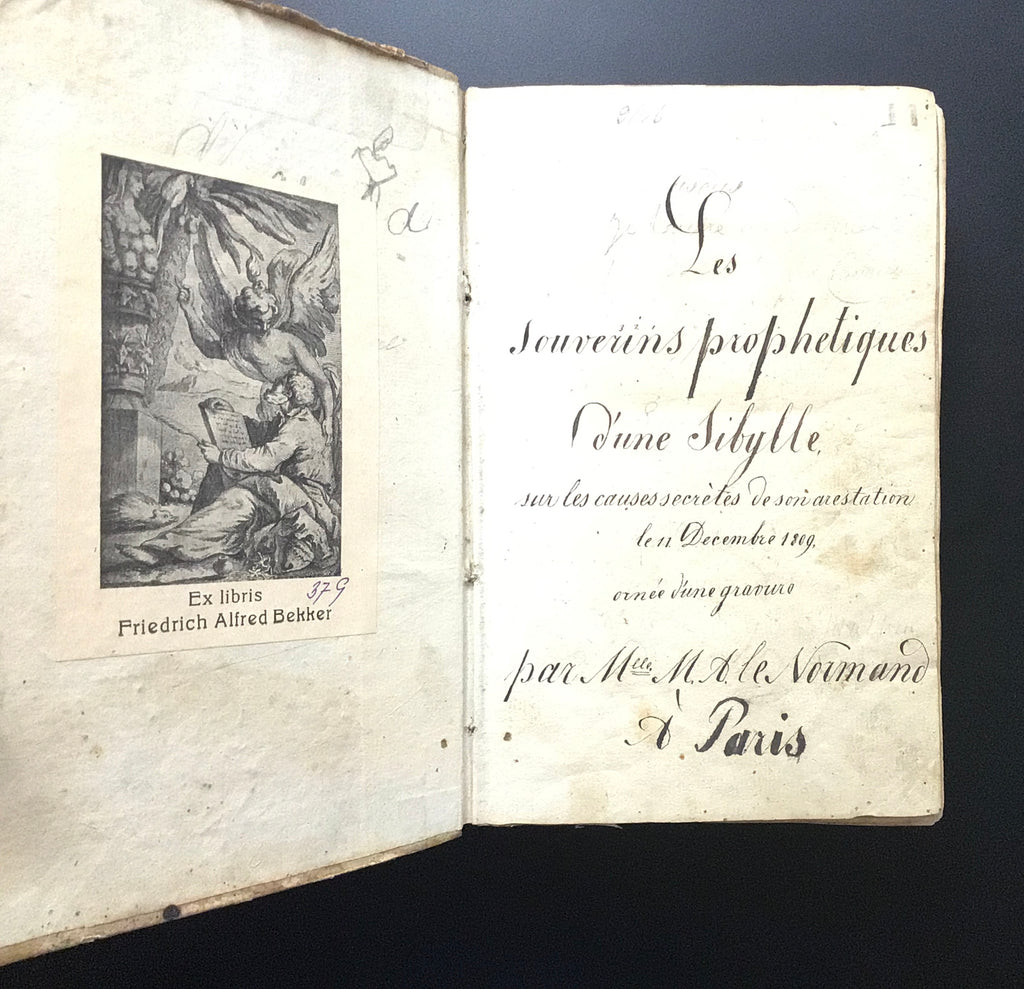 Ex libris
37 G
Friedrich Alfred Bekker
Les
souverins prophetiques
d'une Sibylle,
sur les causes secrètes de son arestation
le 11 Decembre 1809,
ornée d'une gravure
par Mlle. M. A. le Normand
À Paris